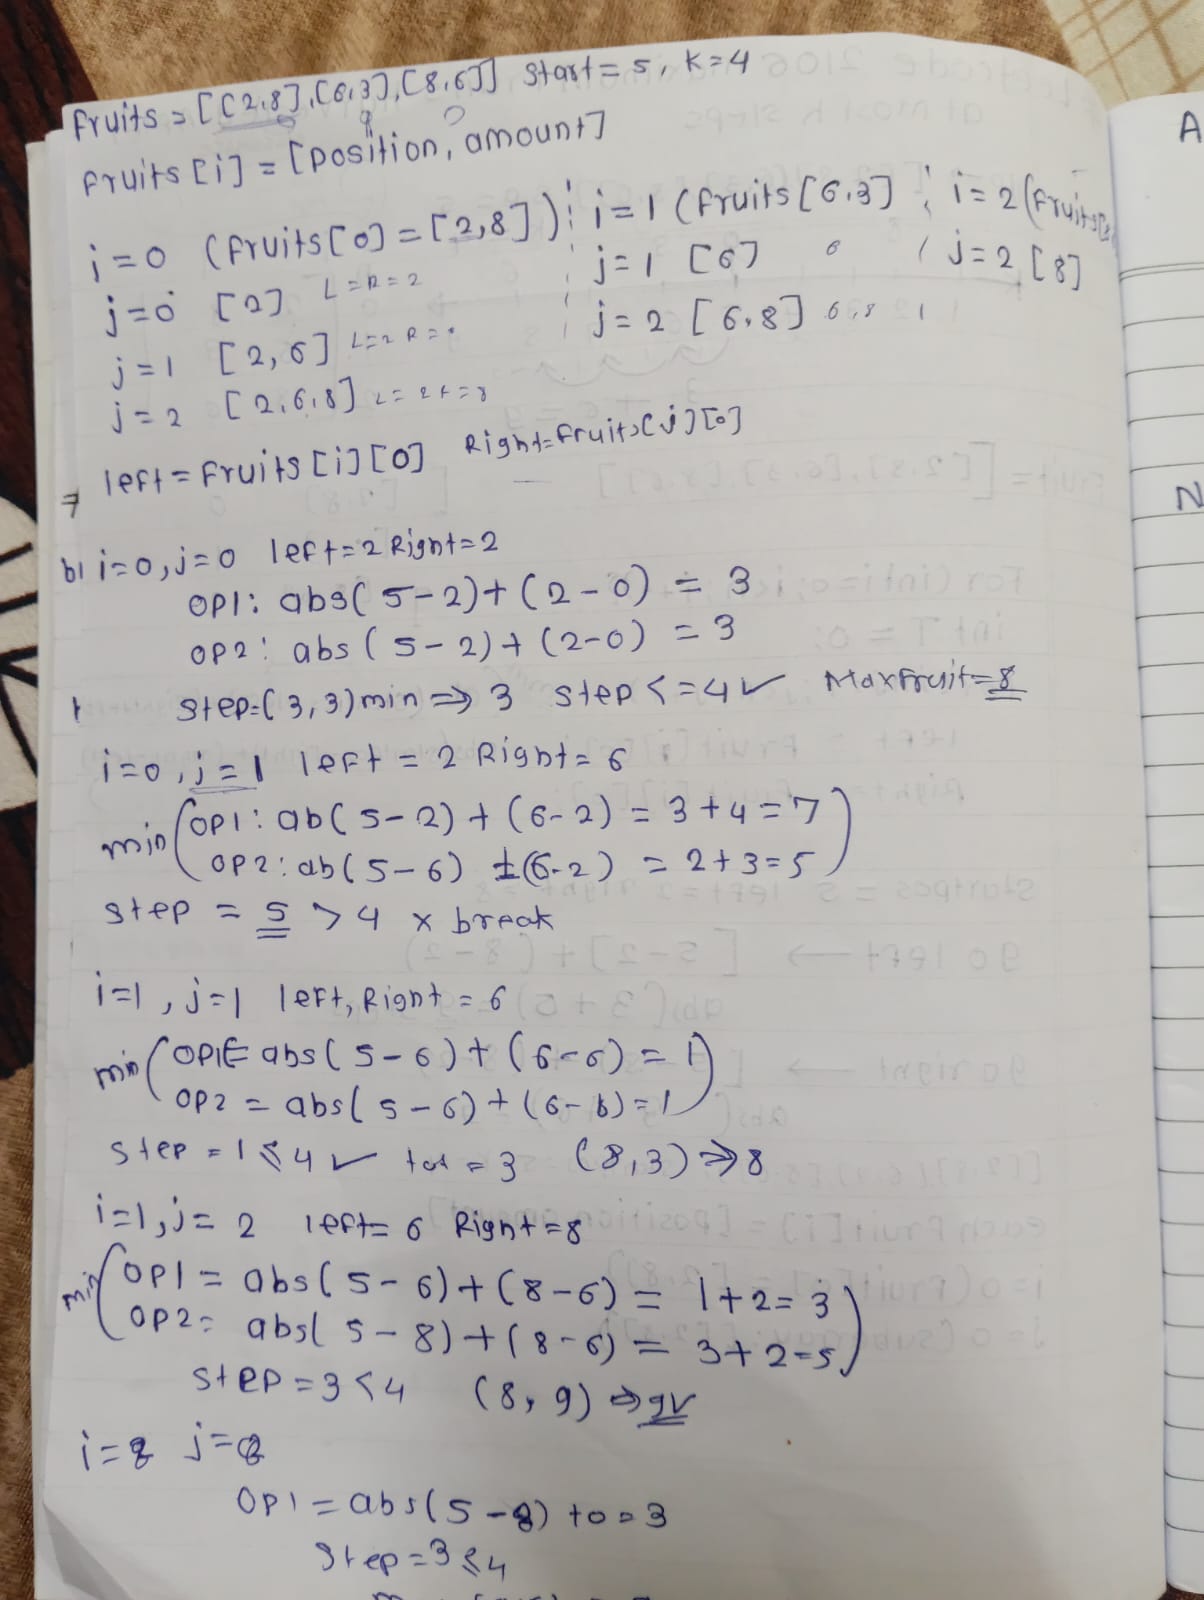 fruits = [[2,8],[6,3],[8,6]] start = 5, K=4
9
fruits[i] = [position, amount]
i=0 (fruits[0] = [2,8]) i=1 (fruits[6,3] i=2 (fruits[2
j=0 [2] L=R=2 j=1 [6] 6 j=2 [8]
j=1 [2,6] L=2 R= j=2 [6,8] 6,8
j=2 [2,6,8] L=2 r=8
left = fruits[i][0] Right=fruits[j][0]
b) i=0, j=0 left=2 Right=2
OP1: abs(5-2)+(2-0) = 3
OP2: abs(5-2)+(2-0) = 3
step=(3,3)min => 3 step <=4 ✓ Maxfruit=8
i=0, j=1 left = 2 Right = 6
min (OP1: ab(5-2) + (6-2) = 3+4=7
OP2: ab(5-6) + (6-2) = 2+3=5)
step = 5 > 4 x break
i=1, j=1 left, Right = 6
min (OP1= abs(5-6)+(6-6) = 1
OP2 = abs(5-6)+(6-6)=1)
step = 1 ≤ 4 ✓ tot = 3 (8,3) => 8
i=1, j=2 left= 6 Right=8
min (OP1 = abs(5-6)+(8-6) = 1+2=3
OP2= abs(5-8)+(8-6) = 3+2=5)
step=3<4 (8,9) => 9✓
i=2 j=2
OP1 = abs(5-8) to = 3
Step=3≤4
A
N